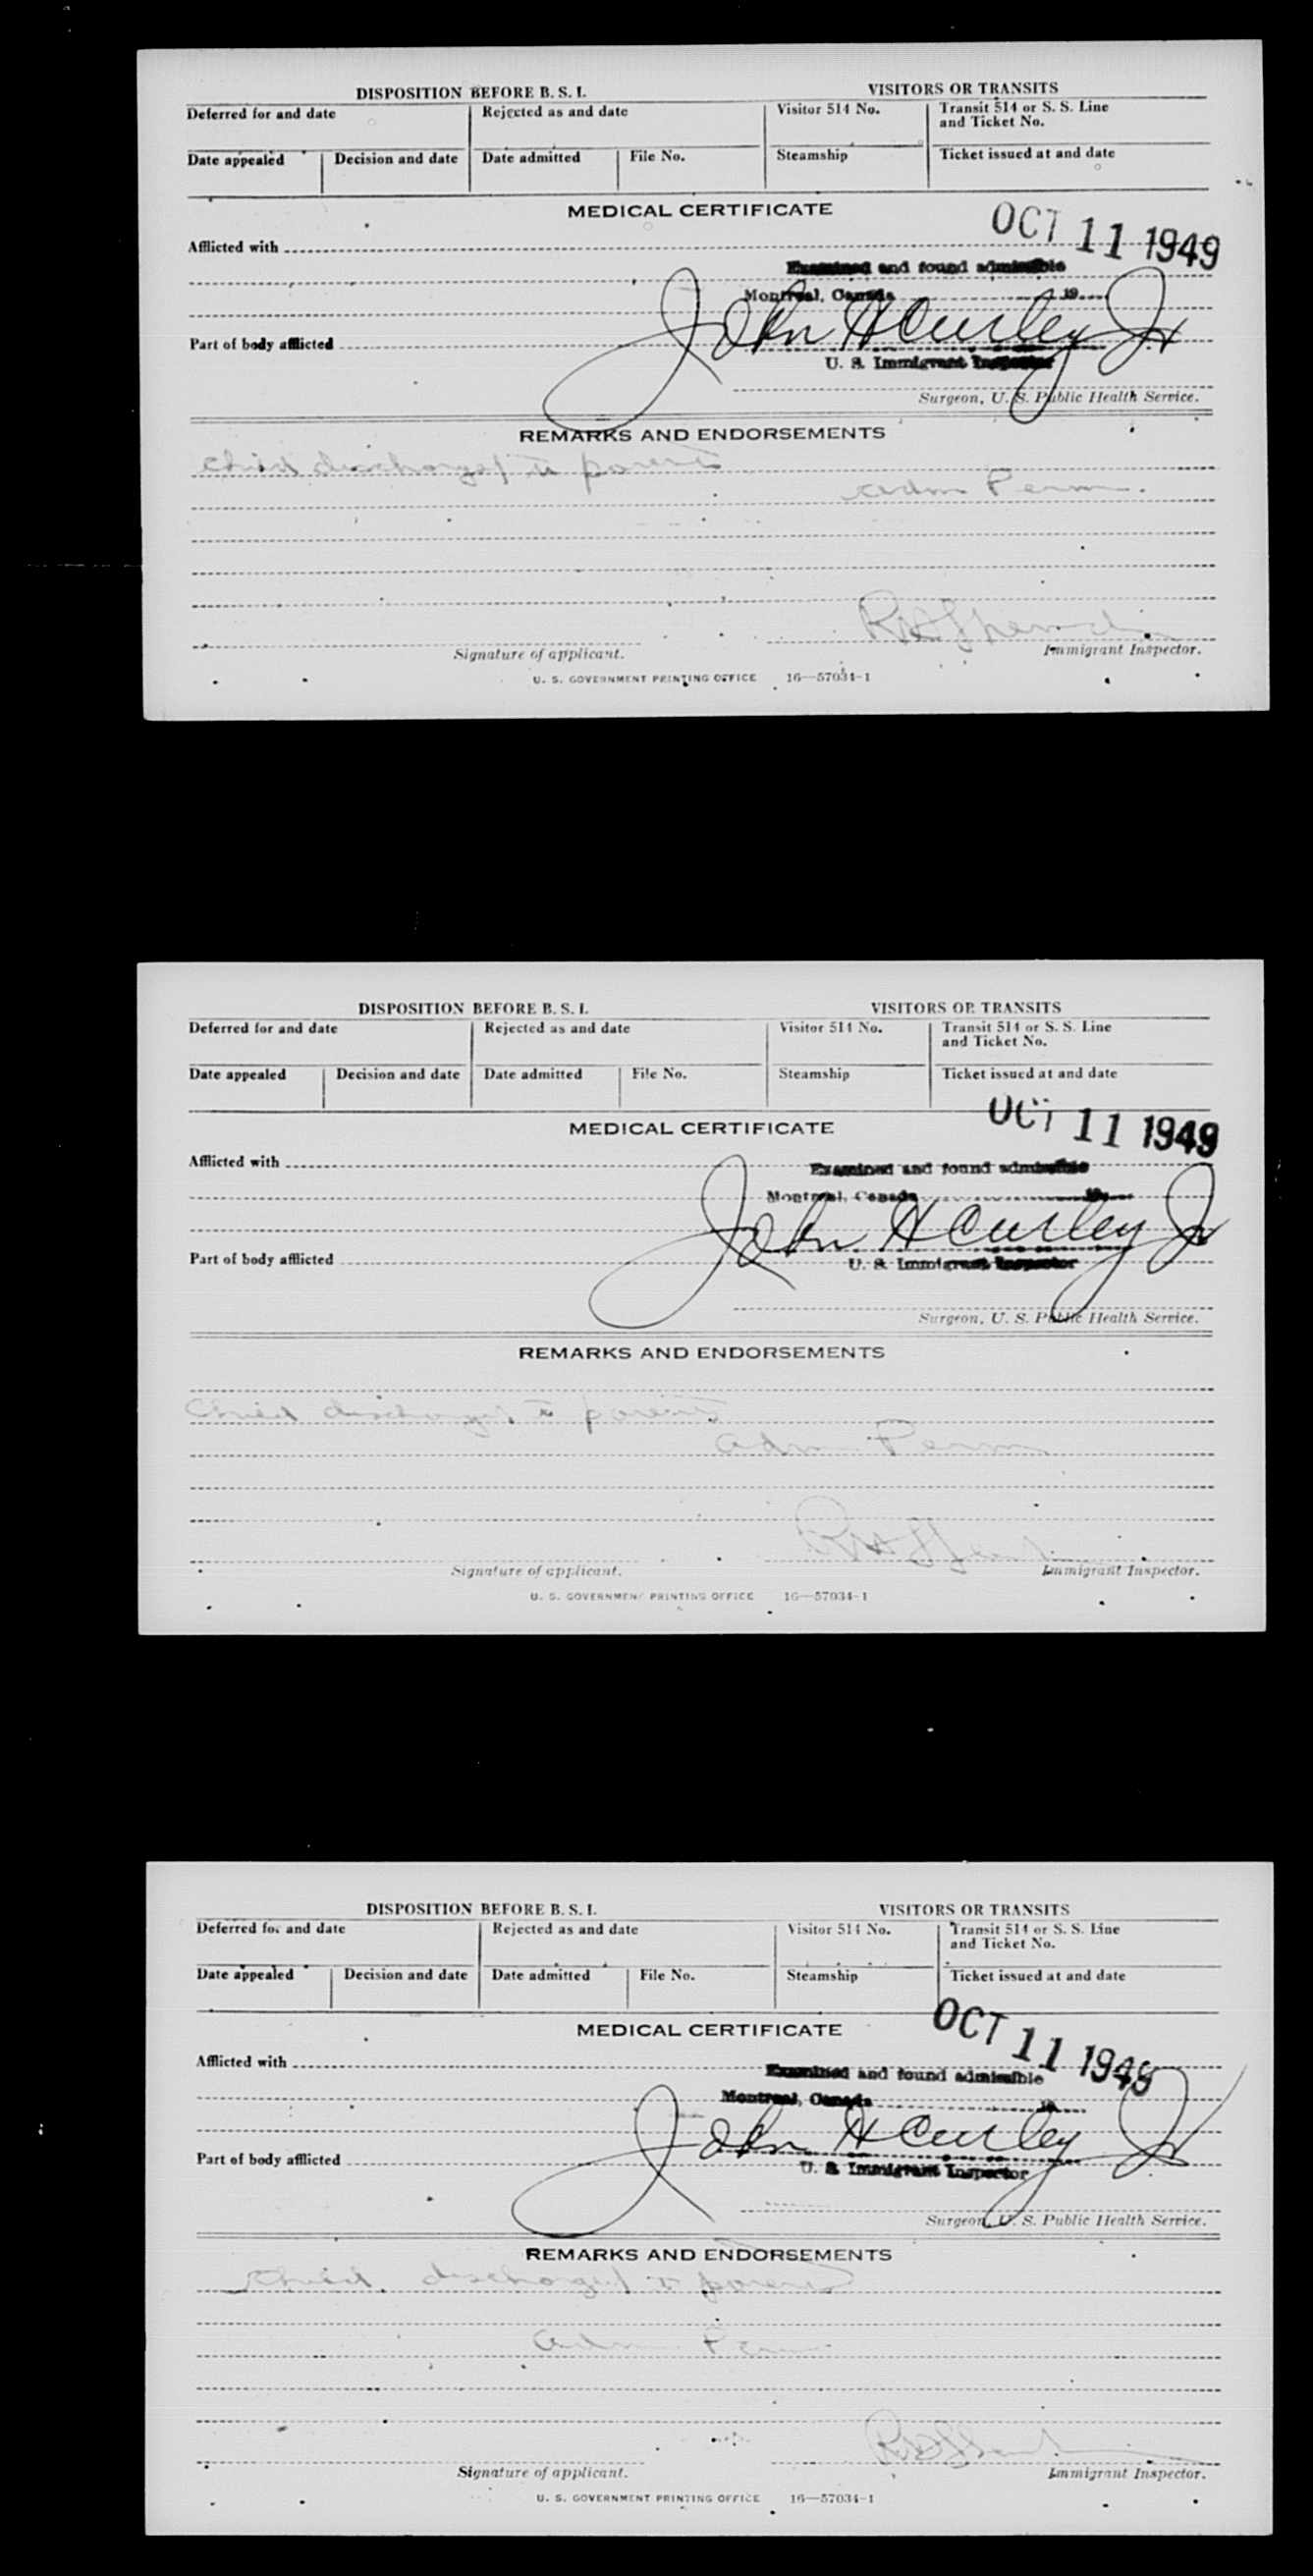 DISPOSITION BEFORE B. S. I. VISITORS OR TRANSITS
Deferred for and date Rejected as and date Visitor 514 No. Transit 514 or S. S. Line
and Ticket No.
Date appealed Decision and date Date admitted File No. Steamship Ticket issued at and date
MEDICAL CERTIFICATE
OCT 11 1949
Afflicted with
Examined and found admissible
Montreal, Canada 19
John H Curley Jr
Part of body afflicted
U. S. Immigrant Inspector
Surgeon, U. S. Public Health Service.
REMARKS AND ENDORSEMENTS
Child discharged to parents
adm Perm.
Signature of applicant. Immigrant Inspector.
U. S. GOVERNMENT PRINTING OFFICE 16—57034-1
DISPOSITION BEFORE B. S. I. VISITORS OR TRANSITS
Deferred for and date Rejected as and date Visitor 514 No. Transit 514 or S. S. Line
and Ticket No.
Date appealed Decision and date Date admitted File No. Steamship Ticket issued at and date
OCT 11 1949
MEDICAL CERTIFICATE
Afflicted with
Examined and found admissible
Montreal, Canada 19
John H Curley Jr
Part of body afflicted
U. S. Immigrant Inspector
Surgeon, U. S. Public Health Service.
REMARKS AND ENDORSEMENTS
Child discharged to parents
adm Perm
Signature of applicant. Immigrant Inspector.
U. S. GOVERNMENT PRINTING OFFICE 16—57034-1
DISPOSITION BEFORE B. S. I. VISITORS OR TRANSITS
Deferred for and date Rejected as and date Visitor 514 No. Transit 514 or S. S. Line
and Ticket No.
Date appealed Decision and date Date admitted File No. Steamship Ticket issued at and date
OCT 11 1949
MEDICAL CERTIFICATE
Afflicted with
Examined and found admissible
Montreal, Canada 19
John H Curley Jr
Part of body afflicted
U. S. Immigrant Inspector
Surgeon, U. S. Public Health Service.
REMARKS AND ENDORSEMENTS
Child discharged to parents
adm Perm
Signature of applicant. Immigrant Inspector.
U. S. GOVERNMENT PRINTING OFFICE 16—57034-1